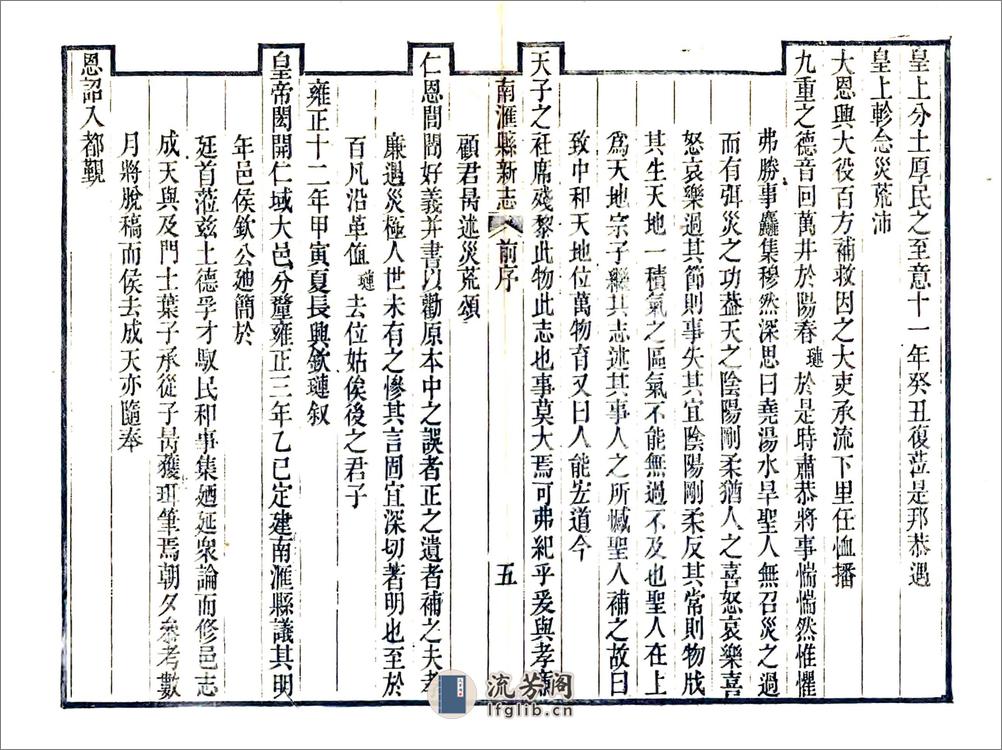 皇上分土厚民之至意十一年癸丑復蒞是邦恭遇
皇上軫念災荒沛
大恩興大役百方補救因之大吏承流下里任恤播
九重之德音回萬井於陽春璉於是時肅恭將事惴惴然惟懼
弗勝事麤集穆然深思曰堯湯水旱聖人無召災之過
而有弭災之功葢天之陰陽剛柔猶人之喜怒哀樂喜
怒哀樂過其節則事失其宜陰陽剛柔反其常則物戕
其生天地一積氣之區氣不能無過不及也聖人在上
爲天地宗子繼其志述其事人之所憾聖人補之故曰
致中和天地位萬物育又曰人能宏道今
天子之社席殘黎此物此志也事莫大焉可弗紀乎爰與孝廉
南滙縣新志
前序
五
顧君昺述災荒頌
仁恩閭閻好義并書以勸原本中之誤者正之遺者補之夫孝
廉遇災極人世未有之慘其言固宜深切著明也至於
百凡沿革值璉去位姑俟後之君子
雍正十二年甲寅夏長興欽璉叙
皇帝閎開仁域大邑分釐雍正三年乙巳定建南滙縣議其明
年邑侯欽公廸簡於
廷首蒞兹土德孚才馭民和事集廼延衆論而修邑志
成天與及門士葉子承從子昺獲珥筆焉朝夕叅考數
月將脫稿而侯去成天亦隨奉
恩詔入都覲
流芳閣
lfglib.cn